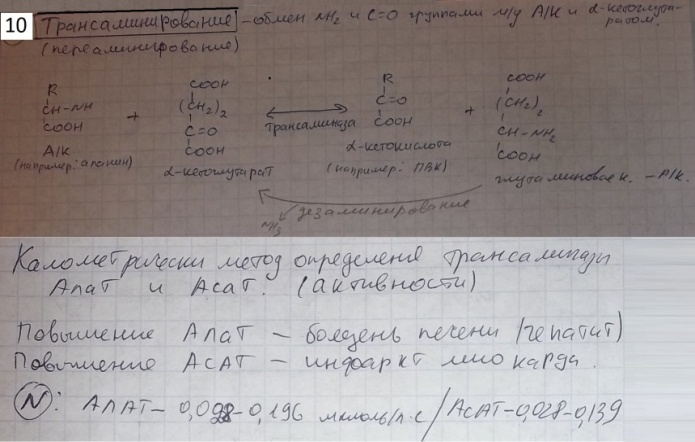 10 Трансаминирование – обмен NH₂ и C=O группами м/у А/К и α-кетоглутаратом.
(переаминирование)
R COOH R COOH
CH-NH + (CH₂)₂ C=O + (CH₂)₂
COOH C=O трансаминаза COOH CH-NH₂
А/К COOH α-кетокислота COOH
(например: аланин) α-кетоглутарат (например: ПВК) глутаминовая к. – А/К
NH₃ дезаминирование
Калометрически метод определения трансаминазы
АлаТ и АсаТ. (активности)
Повышение АлаТ – болезнь печени (гепатит)
Повышение АСАТ – инфаркт миокарда.
N: АЛАТ – 0,028-0,196 мкмоль/л·с / АсАТ – 0,028-0,139